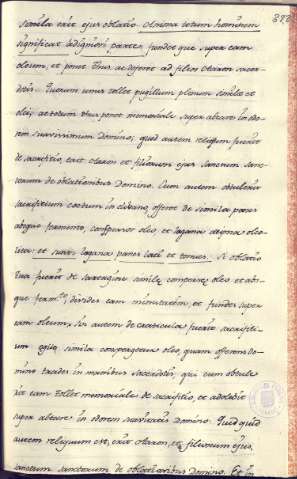 simila erit ejus oblatio. Anima totum hominem
significat à digniori parte: fundet que super eam
oleum, et ponet thus, ac deferet ad filios Aaron sacer
dotis. Quorum unus tollet pugillum plenum similæ et
olei, ac totum thus ponet memoriale super altare in odo
rem suavissimum Domino; quod autem reliquum fuerit
de sacrificio, erit Aaron et filiorum ejus sanctum sanc
torum de oblationibus Domino. Cum autem obtuleris
sacrificium coctum in clibano, offerte de simila panes
absque fermento, conspersos oleo, et lagana azyma oleo
lita: et sunt lagana panes lati et tenues. Si oblatio
tua fuerit de sartagine similæ conspersæ oleo et abs
que ferm.to, divides eam minutatim, et fundes super
eam oleum. Sin autem de craticula fuerit sacrifiti
um æque simila conspergetur oleo, quam offerens Do
mino trades in manibus sacerdotis, qui cum obtule
rit eam tollet memoriale de sacrifitio, et adolebit
super altare in odorem suavitatis Domino. Quid quid
autem reliquum est, erit Aaron et filiorum ejus,
sanctum sanctorum de oblationibus Domino.